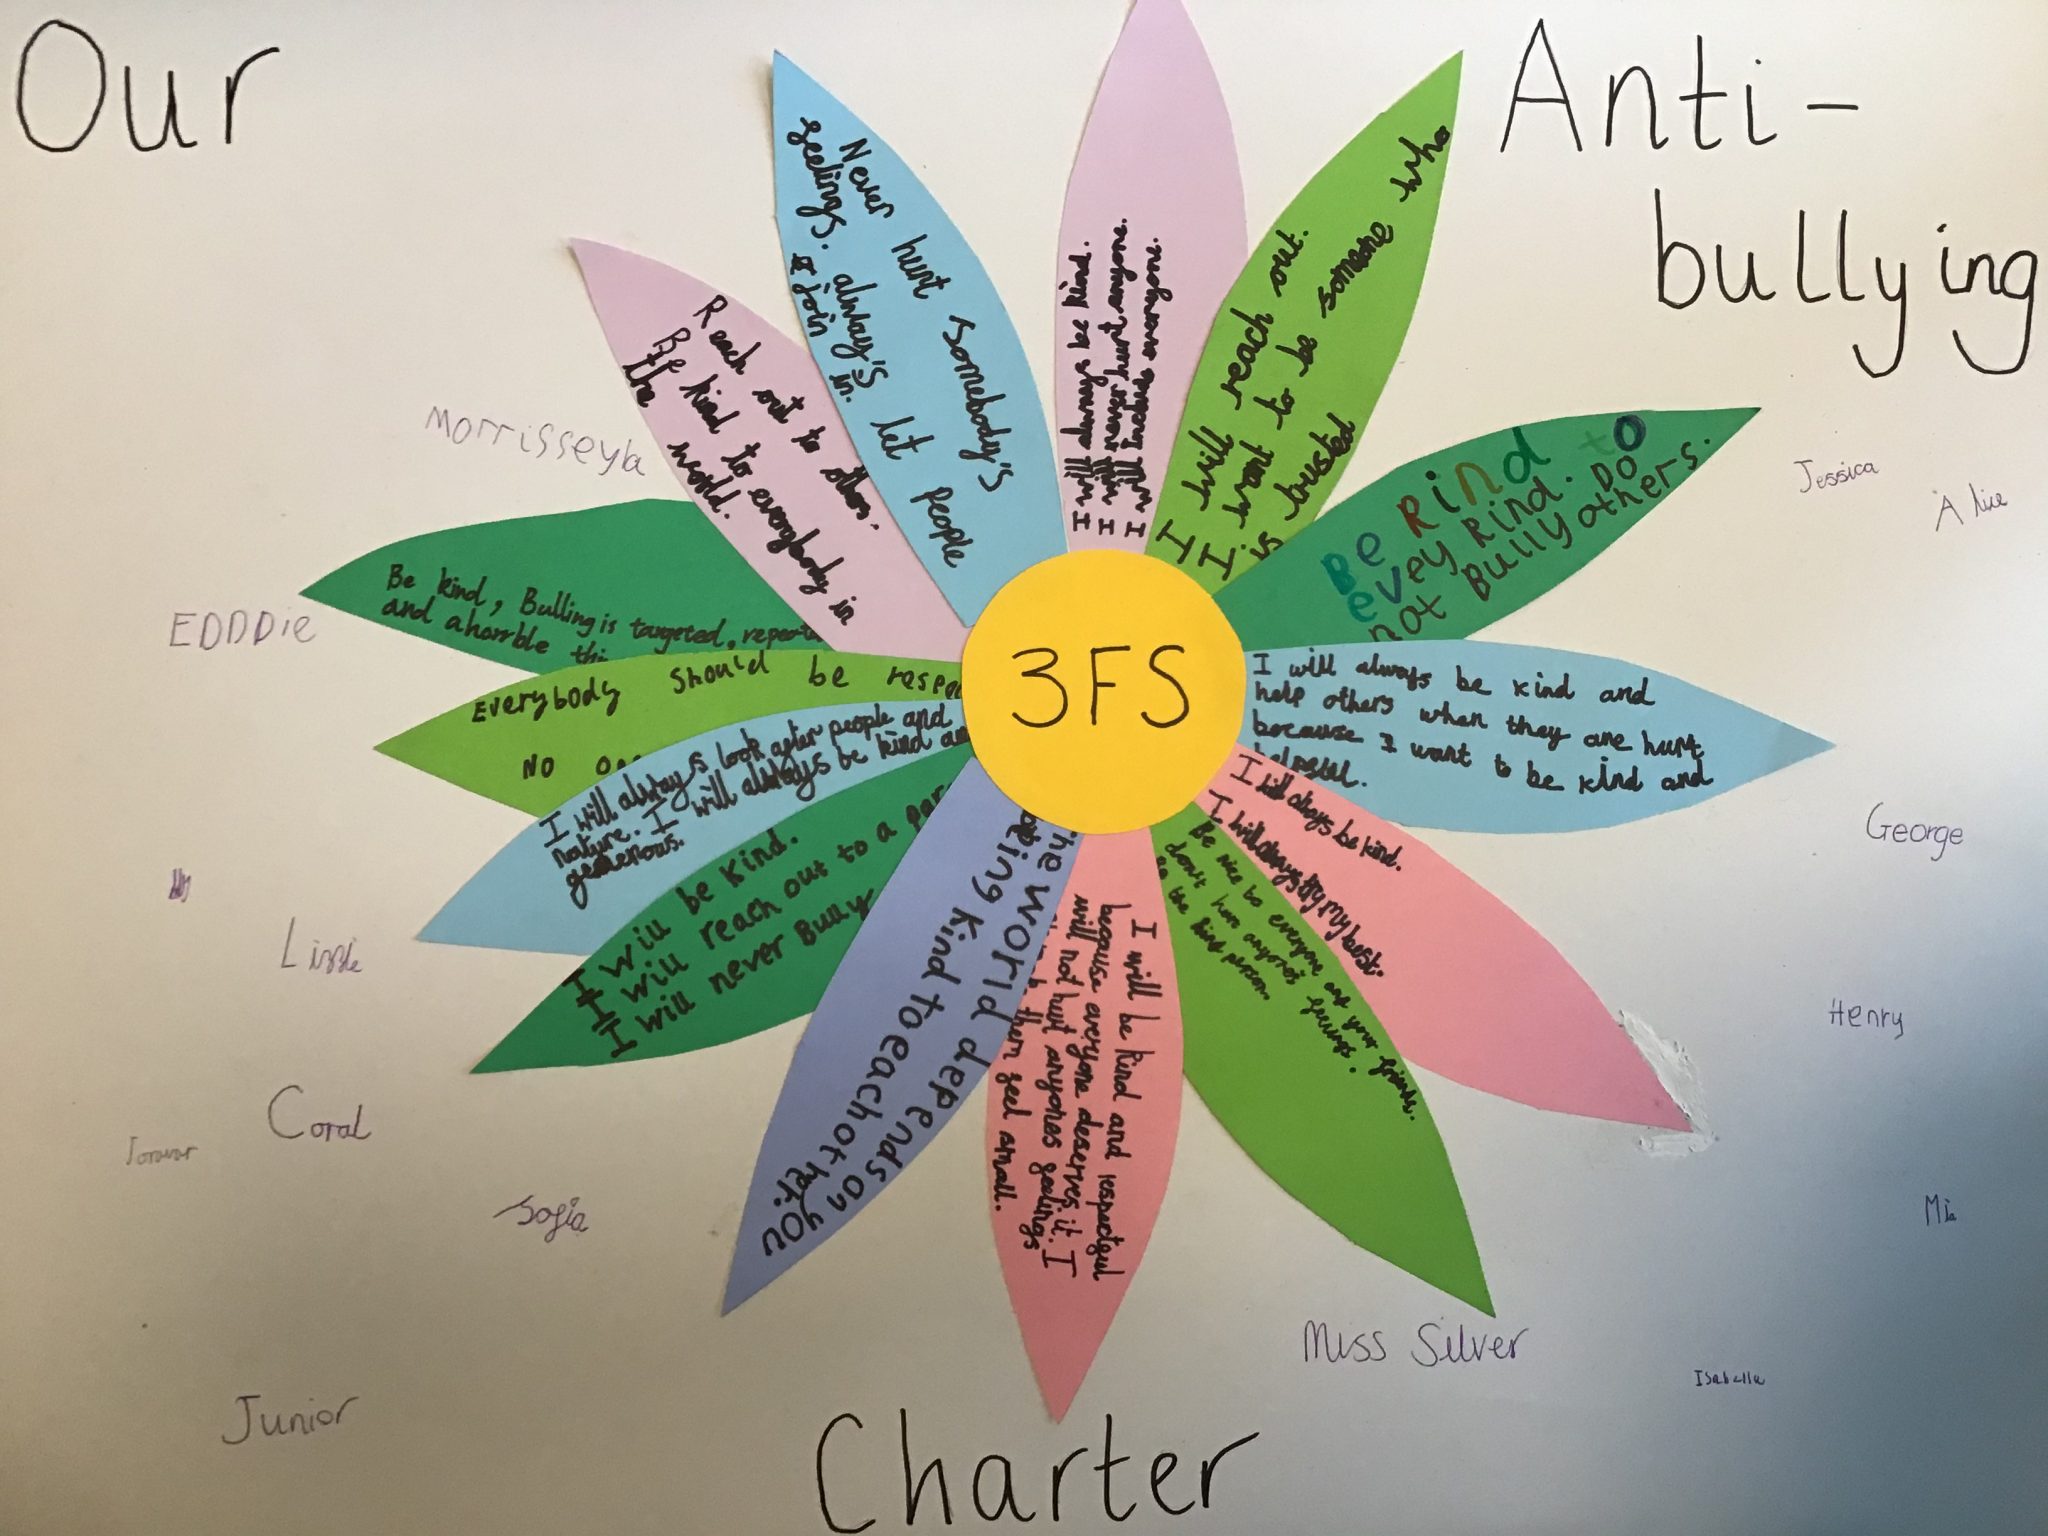 Our
Anti-
bullying
Never hurt somebody's
feelings. always let people
join in.
I will always be kind.
I will never hurt anyone.
I will include everyone.
I will reach out.
I want to be someone who
is trusted
Reach out to others.
Be kind to everybody in
the world.
Be kind to
evey kind. Do
not Bully others.
Morrisseyla
Jessica
Alice
EDDDie
Be kind, Bulling is targeted,
and a horrble
Everybody should be
NO
3FS
I will always be kind and
help others when they are hurt
because I want to be kind and
I will always look after people and
nature. I will always be kind
generous.
I will be kind.
I will reach out to a
I will never Bully
world depends on you
kind to each other.
I will be kind and respectful
because everyone deserves it. I
will not hurt anyones feelings
them feel small.
Be nice to everyone and your friends.
don't hurt anyones feelings.
the kind person.
I will always be kind.
I will always try my best.
George
Lizzie
Henry
Coral
Sofia
Mia
Miss Silver
Isabella
Junior
Charter